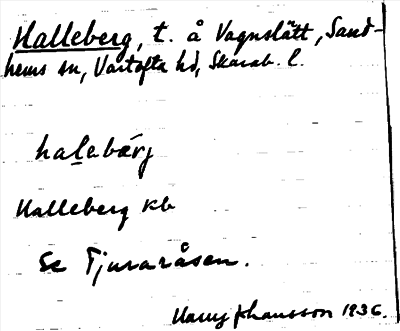 Halleberg, t. å Vagnslätt, Sand-
hems sn, Vartofta hd, Skarab. l.
halebärj
Halleberg kb
Se Tjuvaråsen.
Harry Johansson 1936.